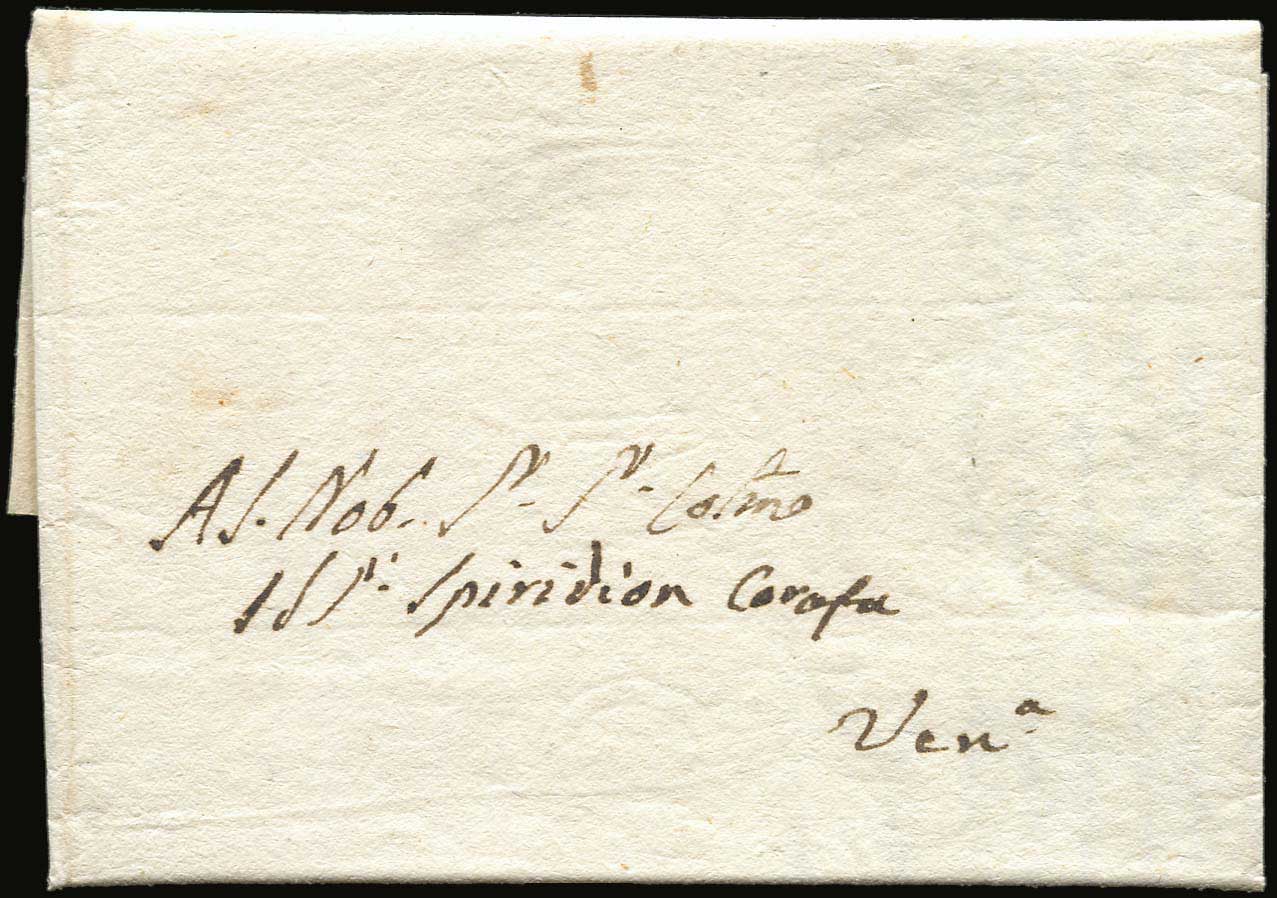 Al Nob. Sr. Sr. Colmo
Il Sr. Spiridion Corafa
Vena